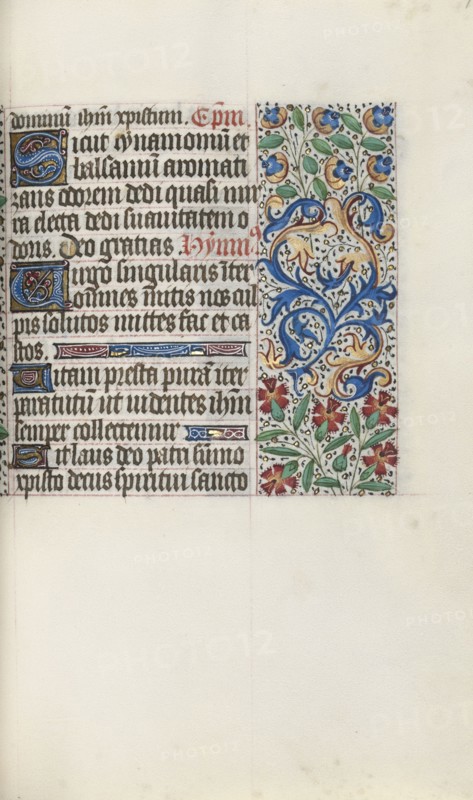 dominū ihm̄ xpistum. Cpm̄.
Sicut cynamomū et
balsamū aromati
zans odorem dedi quasi mir
ra electa dedi suavitatem o
doris. Deo gratias Hymn⁹
Virgo singularis iter
omnes mitis nos cul
pis solutos mittes fac et ca
stos.
Vitam presta purā iter
paratutū ut videntes ihm̄
semper collectemur
Sit laus deo patri sūmo
xpisto decus spiritui sancto
PHOTO12